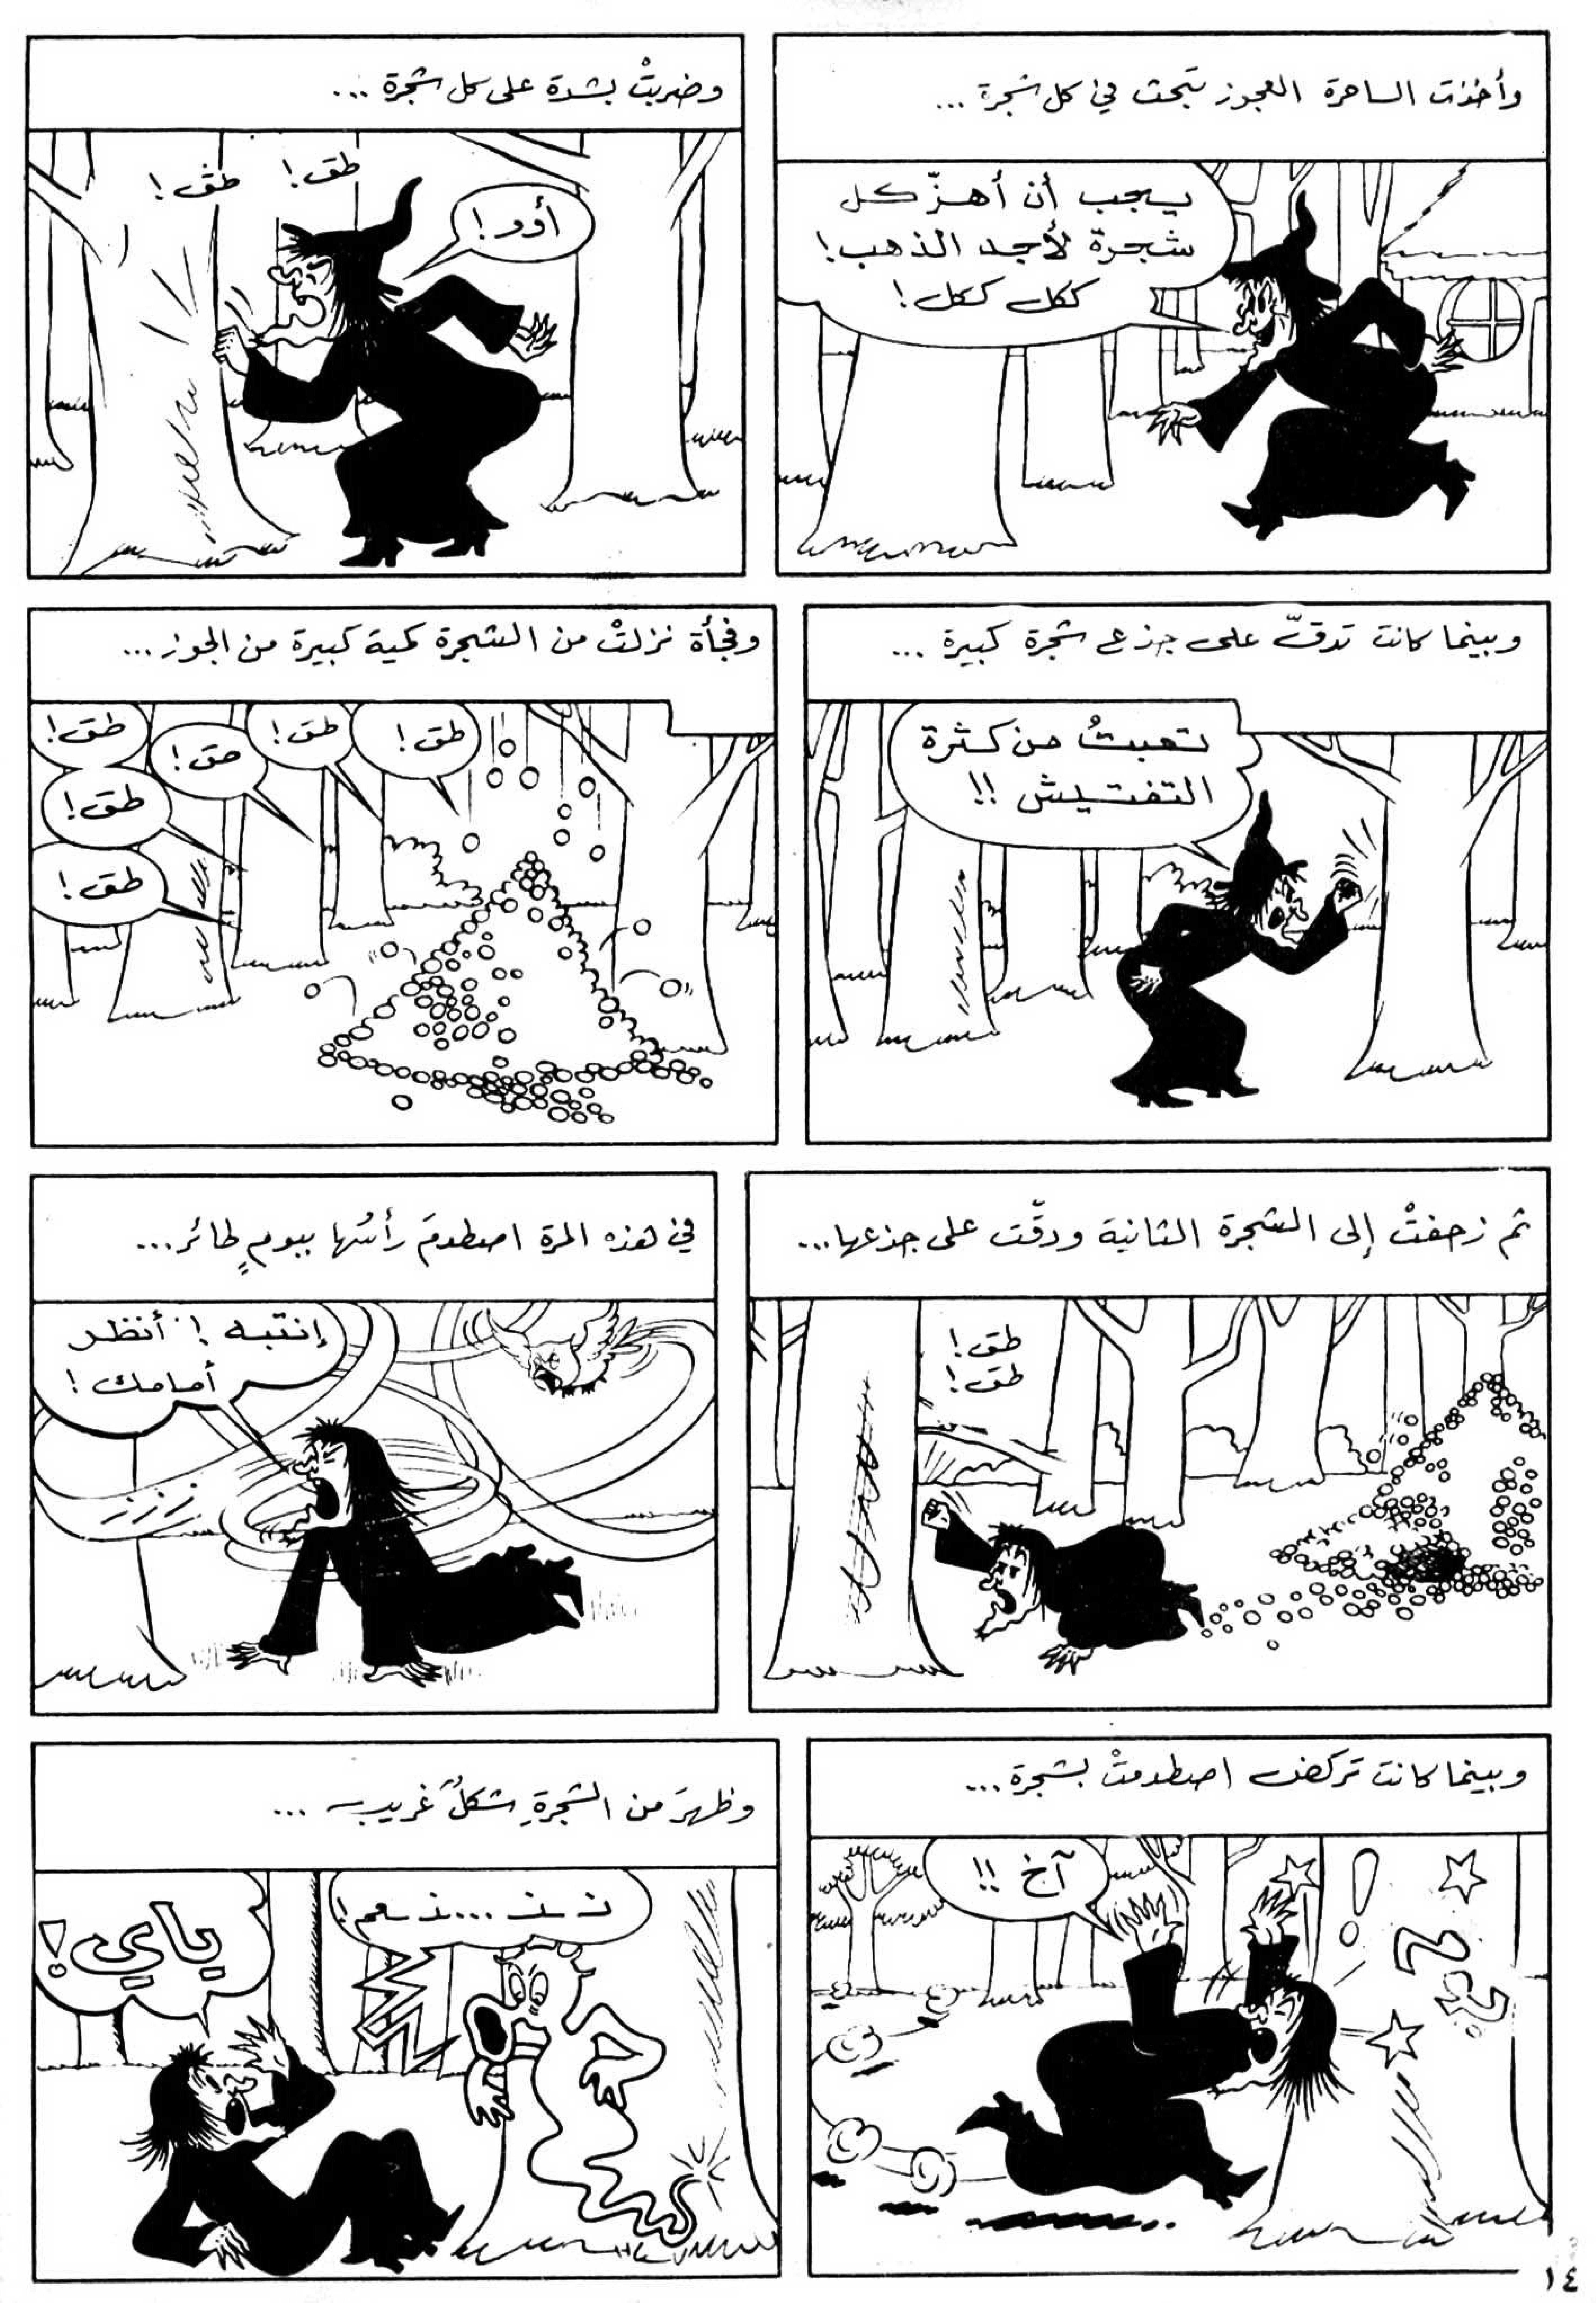 وأخذت الساحرة العجوز تبحث في كل شجرة ...
يجب أن أهزّ كل
شجرة لأجد الذهب!
ككل ككل!
وضربتْ بشدة على كل شجرة ...
طق! طق!
أوو!
وبينما كانت تدقّ على جذع شجرة كبيرة ...
تعبتُ من كثرة
التفتيش !!
وفجأة نزلتْ من الشجرة كمية كبيرة من الجوز ...
طق!
طق!
طق!
طق!
طق!
طق!
ثم زحفتْ إلى الشجرة الثانية ودقّت على جذعها ...
طق!
طق!
في هذه المرة اصطدمَ رأسُها ببومٍ طائر ...
إنتبه! أنظر
أمامك!
وبينما كانت تركض اصطدمتْ بشجرة ...
آخ !!
وظهرَ من الشجرةِ شكلٌ غريب ...
نـ نـ ... نـ نعم!
ياي!
١٤